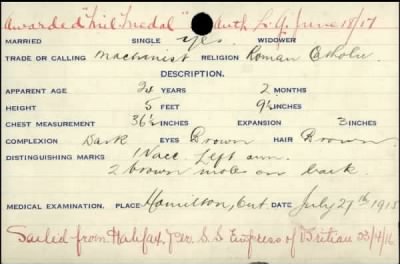 Awarded "Mil. Medal" Auth. L.G. June 18/17
MARRIED SINGLE yes. WIDOWER
TRADE OR CALLING Machinist RELIGION Roman Catholic.
DESCRIPTION.
APPARENT AGE 24 YEARS 2 MONTHS
HEIGHT 5 FEET 9½ INCHES
CHEST MEASUREMENT 36½ INCHES EXPANSION 3 INCHES
COMPLEXION Dark EYES Brown HAIR Brown
DISTINGUISHING MARKS 1 Vacc. Left arm.
2 brown moles on back
MEDICAL EXAMINATION. PLACE Hamilton, Ont DATE July 27th 1915
Sailed from Halifax, Per. S.S Empress of Britian /4/16